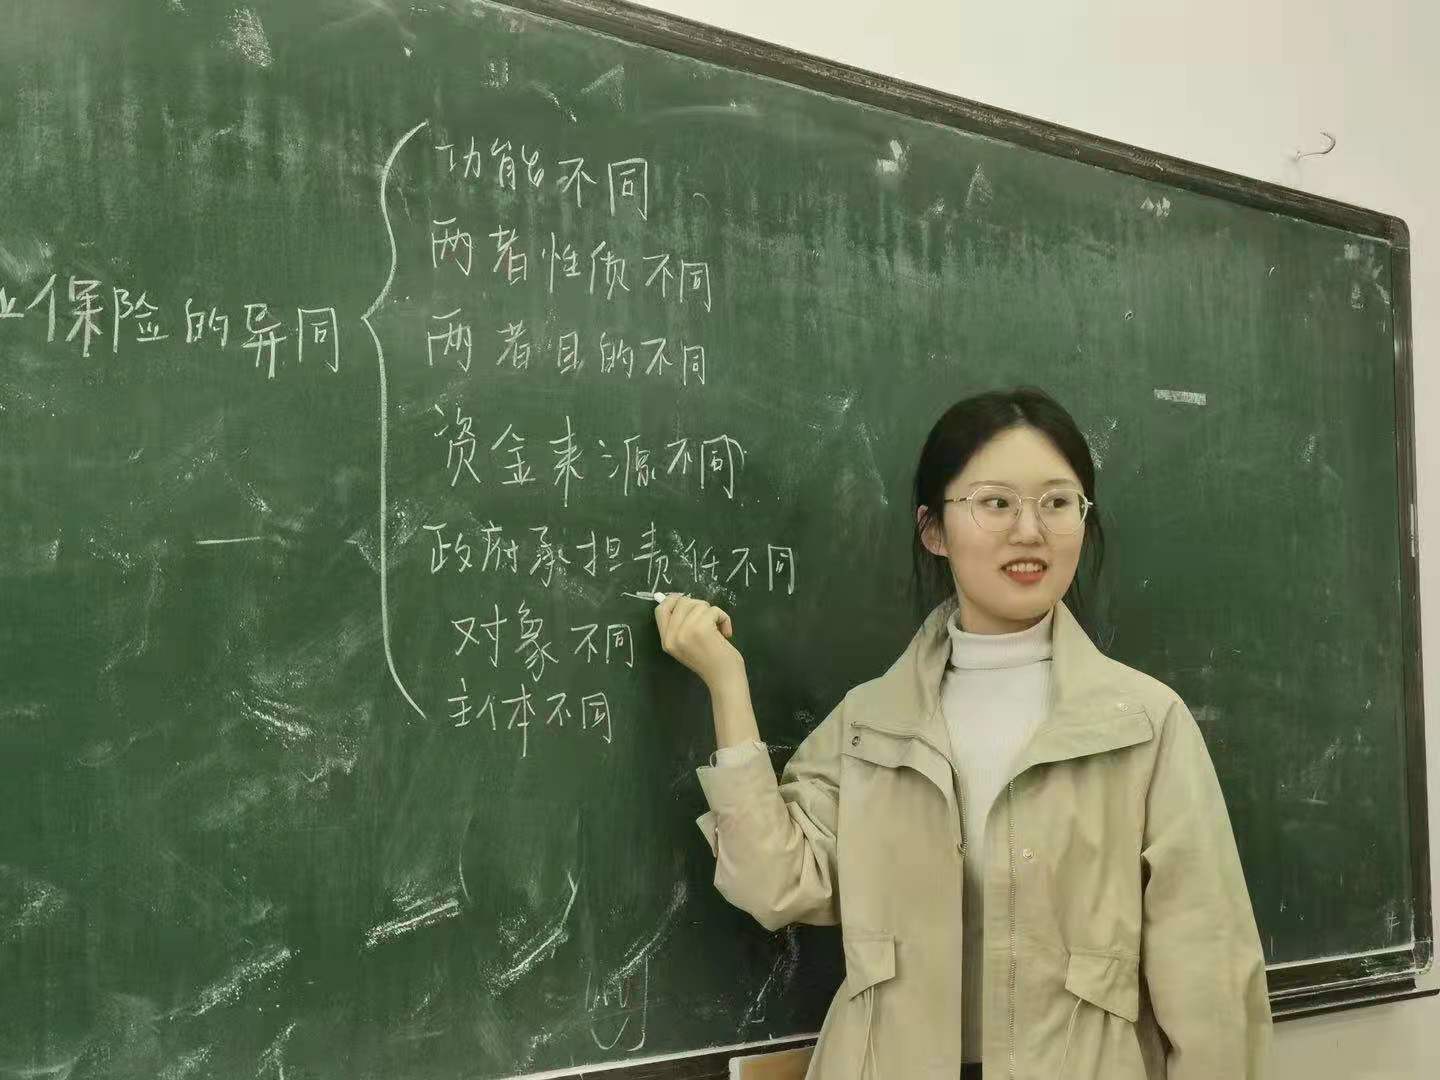 业保险的异同
功能不同
两者性质不同
两者目的不同
资金来源不同
政府承担责任不同
对象不同
主体不同